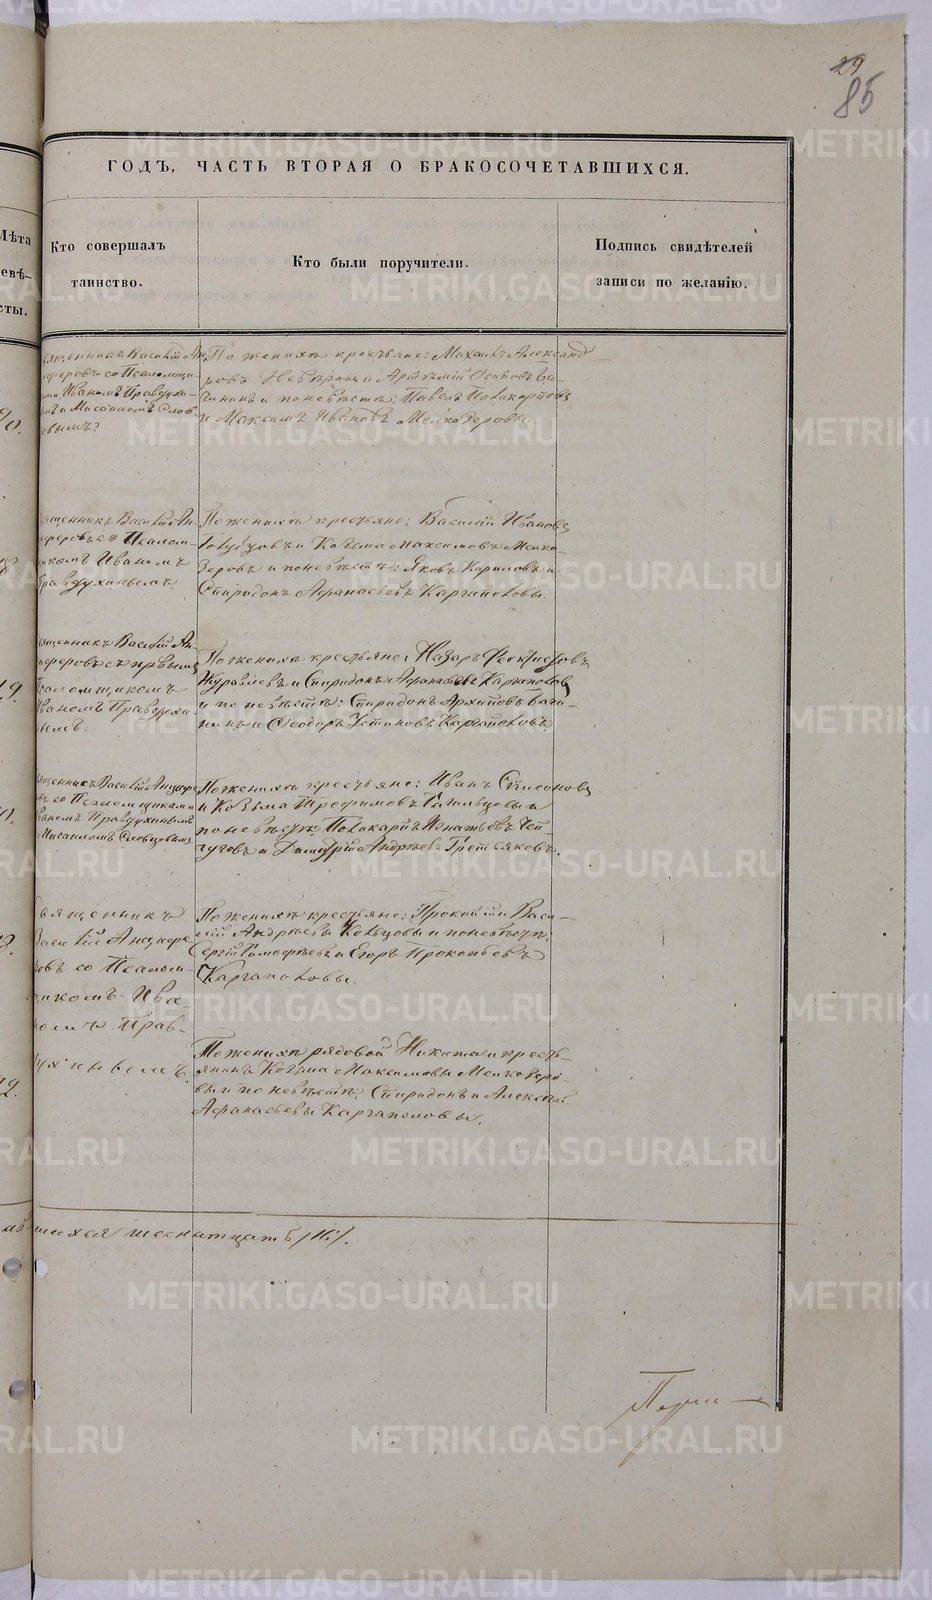 29
85
ГОДЪ, ЧАСТЬ ВТОРАЯ О БРАКОСОЧЕТАВШИХСЯ.
Лѣта
евѣ-
сты.
Кто совершалъ
таинство.
Кто были поручители.
Подпись свидѣтелей
записи по желанію.
ященникъ Василій Ан
феровъ со Псаломщи
Иваномъ Правдухи-
и Мисаиломъ Слов
вымъ
По женихѣ крестьяне: Михаилъ Александ
ровъ и Артемій
и по невѣстѣ: Павелъ Поликарповъ
и Максимъ Ивановъ Мелкозеровы.
ященникъ Василій Ан-
феровъ Псалом-
икомъ Иваномъ
равдухинымъ
По женихѣ крестьяне: Василій Ивановъ
и Козьма Максимовъ Мелко-
зеровъ и по невѣстѣ: Яковъ Кириловъ и
Спиридонъ Афанасьевъ Каргаполовы.
ященникъ Василій Ан-
феровъ съ
саломщикомъ
ваномъ Правдухи-
нымъ.
По женихѣ крестьяне: Назаръ Феоктистовъ
Журавлевъ и Спиридонъ Афанасьевъ Каргаполовъ
и по невѣстѣ: Спиридонъ Архиповъ
и Ѳеодоръ Устиновъ Каргаполовъ
ященникъ Василій Анцифе
въ со Псаломщиками
ваномъ Правдухинымъ
Мисаиломъ Словцовымъ
По женихѣ крестьяне: Иванъ Симеоновъ
и Козьма Трофимовъ Тагильцовы и
по невѣстѣ: Поликарпъ Игнатьевъ
и Димитрій Андреевъ Третьяковъ.
вященникъ
Василій Анцифе
ровъ со Псалом-
щикомъ Ива-
номъ Прав-
ухинымъ.
По женихѣ крестьяне: Прокопій и Васи-
лій Андреевы Кольцовы и по невѣстѣ:
Сергій Тимофѣевъ и Егоръ Прокопьевъ
Каргаполовы.
По женихѣ рядовой Никита и кресть-
янинъ Козьма Максимовы Мелкозеро-
вы и по невѣстѣ: Спиридонъ и Алексѣй
Афанасьевы Каргаполовы.
шихся шеснатцать /16/.
METRIKI.GASO-URAL.RU